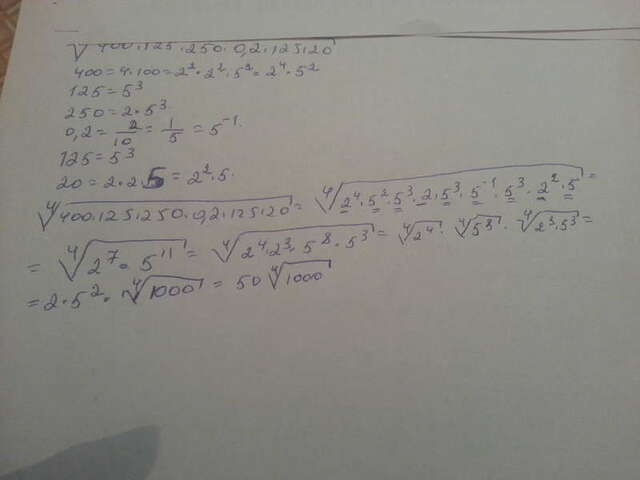 √400·125·250·0,2·125·20
400 = 4·100 = 2²·2²·5² = 2⁴·5²
125 = 5³
250 = 2·5³.
0,2 = 2/10 = 1/5 = 5⁻¹.
125 = 5³
20 = 2·2·5 = 2²·5.
⁴√400·125·250·0,2·125·20 = ⁴√2⁴·5²·5³·2·5³·5⁻¹·5³·2²·5 =
= ⁴√2⁷·5¹¹ = ⁴√2⁴·2³·5⁸·5³ = ⁴√2⁴·⁴√5⁸·⁴√2³·5³ =
= 2·5²·⁴√1000 = 50⁴√1000